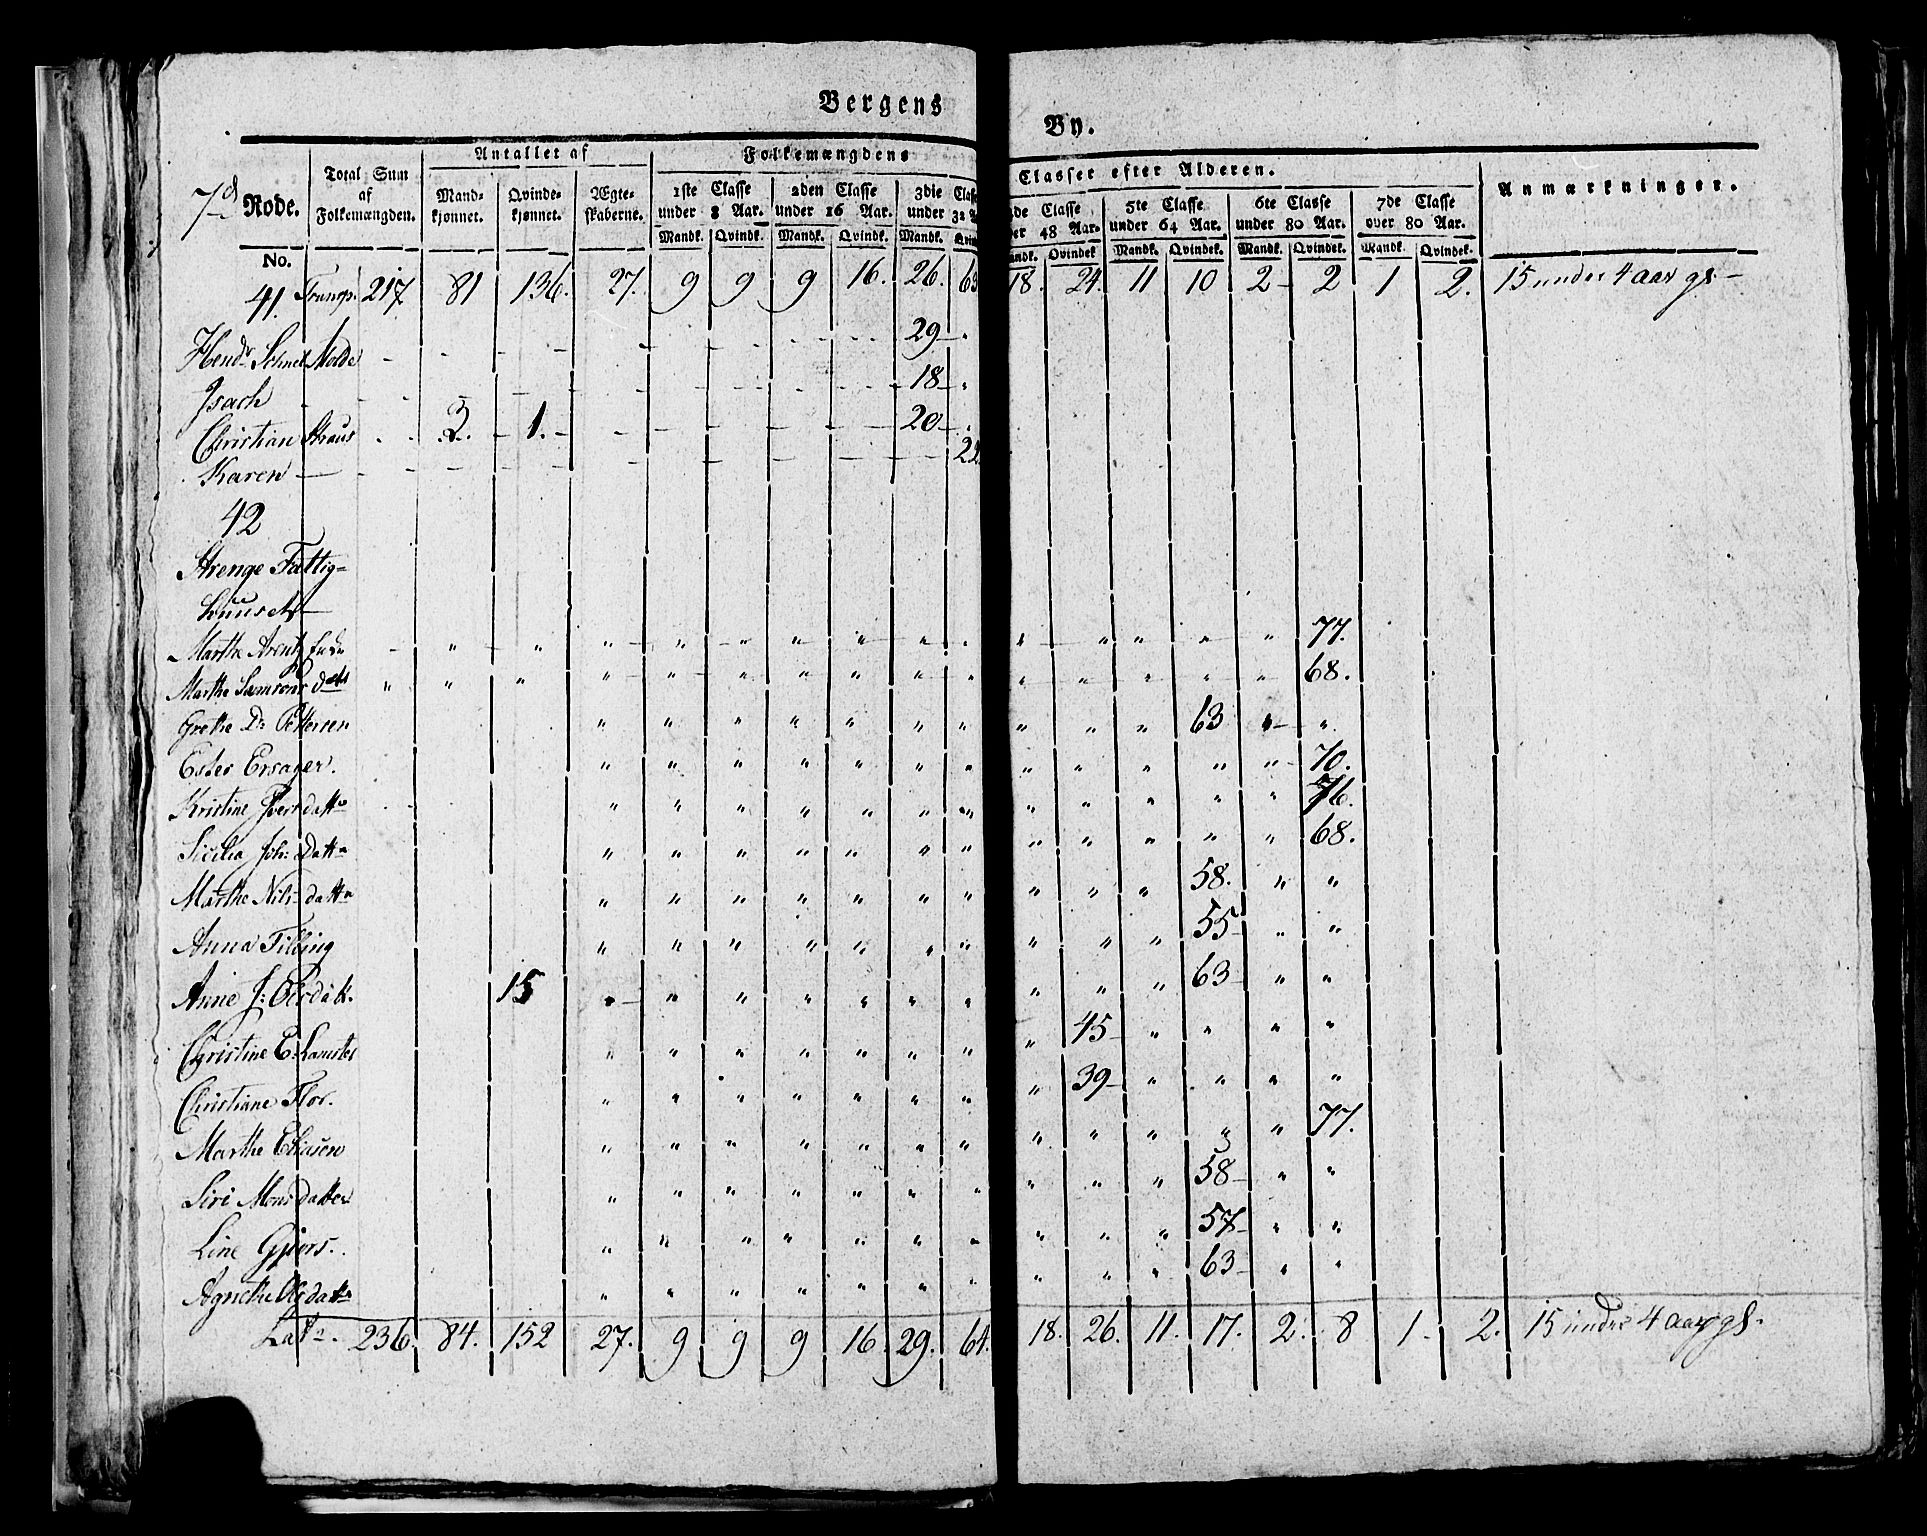 Bergens By.
7de Rode.
Total Sum af Folkemængden.
Antallet af
Mand-kjønnet. Qvinde-kjønnet. Ægte-skaberne.
Folkemængdens Classer efter Alderen.
1ste Classe under 8 Aar. 2den Classe under 16 Aar. 3die Clas under 32 A de Classe er 48 Aar. 5te Classe under 64 Aar. 6te Classe under 80 Aar. 7de Classe over 80 Aar. Anmærkninger.
Mandk. Qvindk. Mandk. Qvindk. Mandk. Qvin andk. Qvindek Mandk. Qvindek. Mandk. Qvindek. Mandk. Qvindek.
No.
41. Transp. 217 81 136. 27. 9 9 9 16. 26. 63 18. 24. 11 10 2 2 1 2. 15 under 4 aar gl
Hendr Schnel Molde 29
Isach 18
Christian Straus 3. 1. 20
Karen — 22
42
Strenge Fattig-
huuset
Marthe Arentz 77.
Marthe Samsons datr 68.
Grethe D: Pettersen 63
Ester Ersager. 70.
Kristine Ivers datter 76.
Sicilia Joh: Datr 68.
Marthe Nils datr 58.
Anna Tilling 55
Anne J: Olsdatt. 15 63
Christine E. 45
Christiane Flor. 39
Marthe Eliasen 77.
Siri Mons datter 58
Line Gjørs. 57
Agnethe Olsdatr 63
Lats. 236. 84. 152 27. 9 9 9 16 29. 64. 18. 26. 11. 17. 2. 8 1. 2. 15 under 4 aar gl.